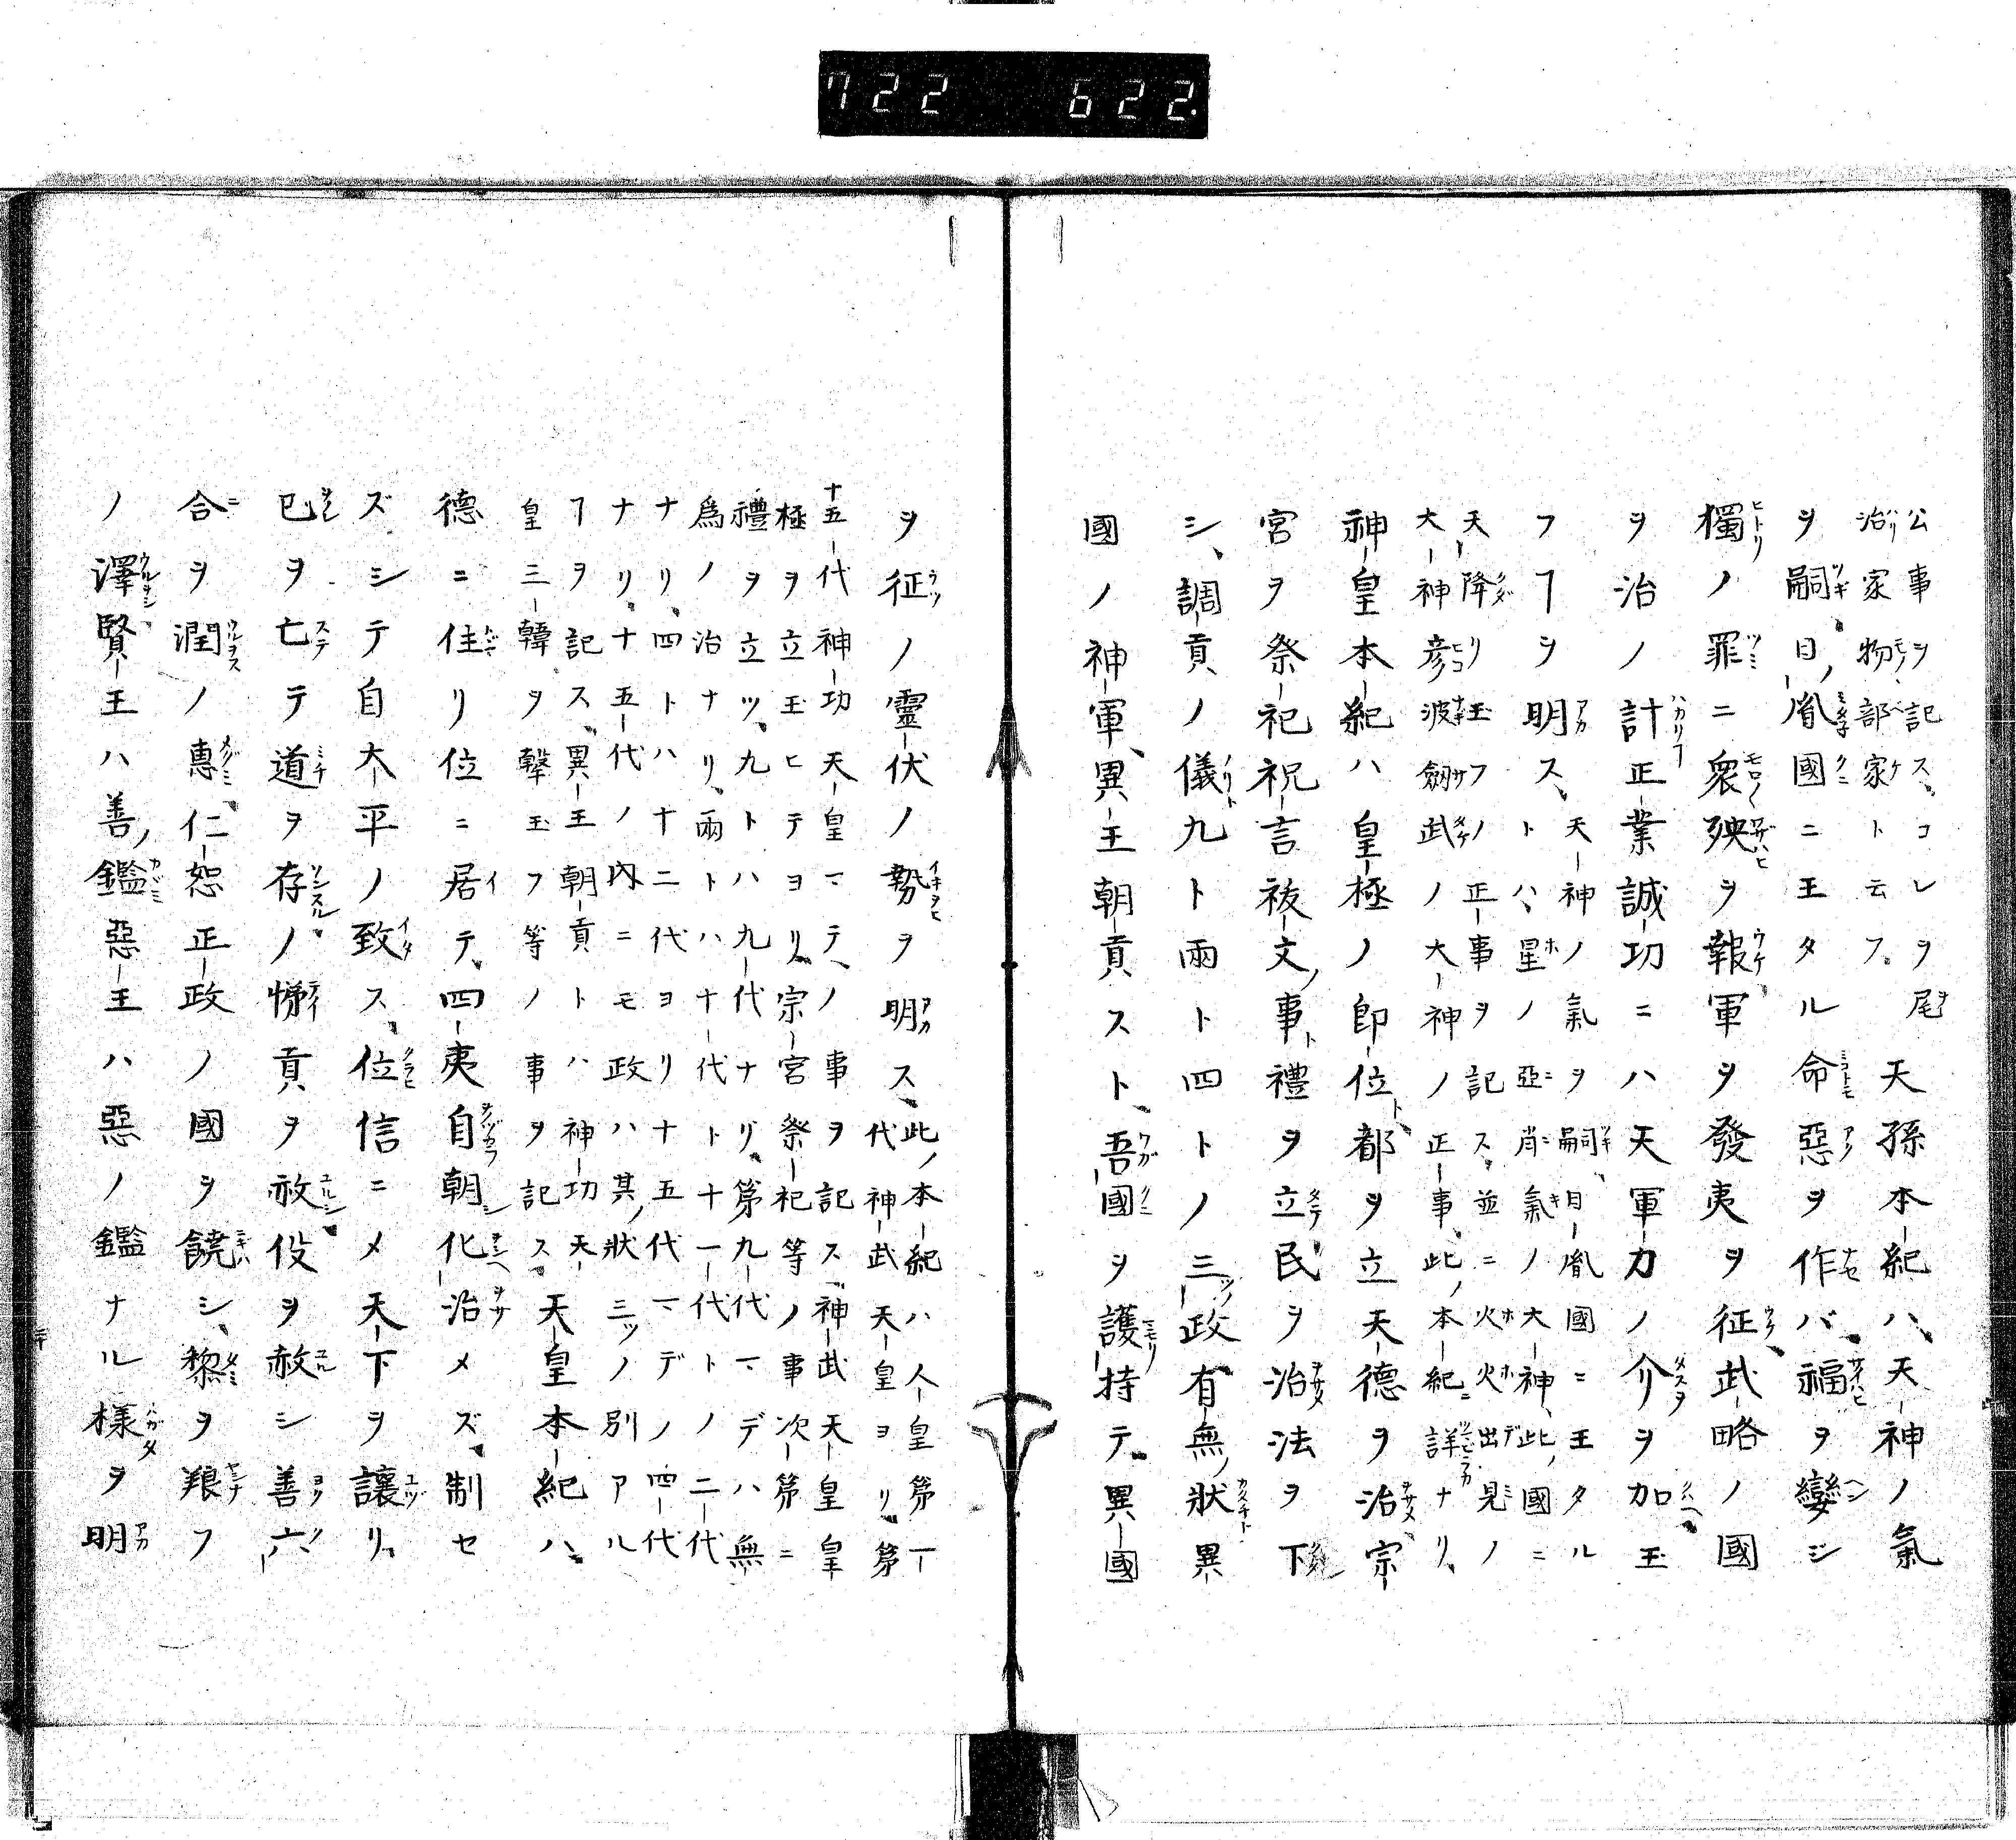 722 622.
公事ヲ記ス、コレヲ尾
治家物部家ト云フ。
天孫本紀ハ、天神ノ氣
ヲ嗣、日ノ胤國ニ王タル命惡ヲ作バ、福ヲ孌シ
獨ノ罪ニ衆殃ヲ報、軍ヲ發夷ヲ征、武略ノ國
ヲ治ノ計正業誠功ニハ天軍力ノ介ヲ加、玉
フヿヲ明ス、
天神ノ氣ヲ嗣、日胤國ニ王タル
トハ、星ノ亞肖氣ノ大神、此ノ國ニ
天降リ玉フノ正事ヲ記ス、並ニ火火出見ノ
大神彦波劔武ノ大神ノ正事、此ノ本紀ニ詳ナリ、
神皇本紀ハ皇極ノ即位ト、都ヲ立天德ヲ治、宗
宮ヲ祭祀祝言祓文ノ事ト禮ヲ立民ヲ治法ヲ下
シ、調貢ノ儀九ト兩ト四トノ三政有無ノ狀異
國ノ神軍、異王朝貢スト、吾國ヲ護持テ、異國
ヲ征ノ靈伏ノ勢ヲ明ス、
此ノ本紀ハ人皇第一
代神武天皇ヨリ、第
十五代神功天皇マテ、ノ事ヲ記ス、神武天皇皇
極ヲ立玉ヒテヨリ、宗宮祭祀等ノ事次第ニ
禮ヲ立ツ、九トハ九代ナリ、第九代マデハ無
爲ノ治ナリ、兩トハ十代ト十一代トノ二代
ナリ、四トハ十二代ヨリ十五代マデノ四代
ナリ、十五代ノ内ニモ政ハ其ノ狀三ツノ別アル
ヿヲ記ス、異王朝貢トハ神功天
皇三韓ヲ擊玉フ等ノ事ヲ記ス、
天皇本紀ハ、
德ニ住リ位ニ居テ、四夷自朝化治メズ、制セ
ズシテ自大平ノ致ス、位信ニメ天下ヲ讓リ、
已ヲ亡テ道ヲ存ノ悌貢ヲ赦役ヲ赦シ善六
合ヲ潤ノ惠、仁恕正政ノ國ヲ饒シ、黎ヲ粮フ
ノ澤、賢王ハ善ノ鑑惡王ハ惡ノ鑑ナル樣ヲ明